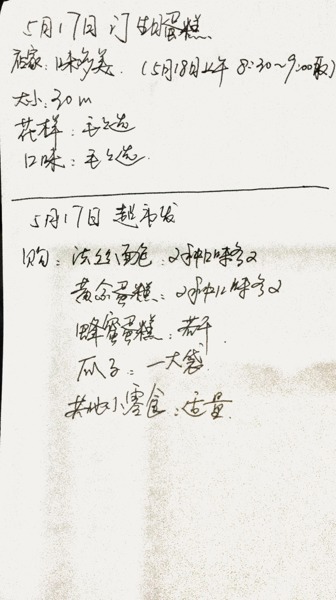 5月17日订生日蛋糕
店家:味多美.(5月18日上午8:30~9:00取)
大小:30m
花样:毛毛选
口味:毛毛选.
5月17日 超市发
购:法丝面包:2种口味各2
黄金蛋糕:2种口味各2
蜂蜜蛋糕:若干
瓜子:一大袋
其他小零食:适量.